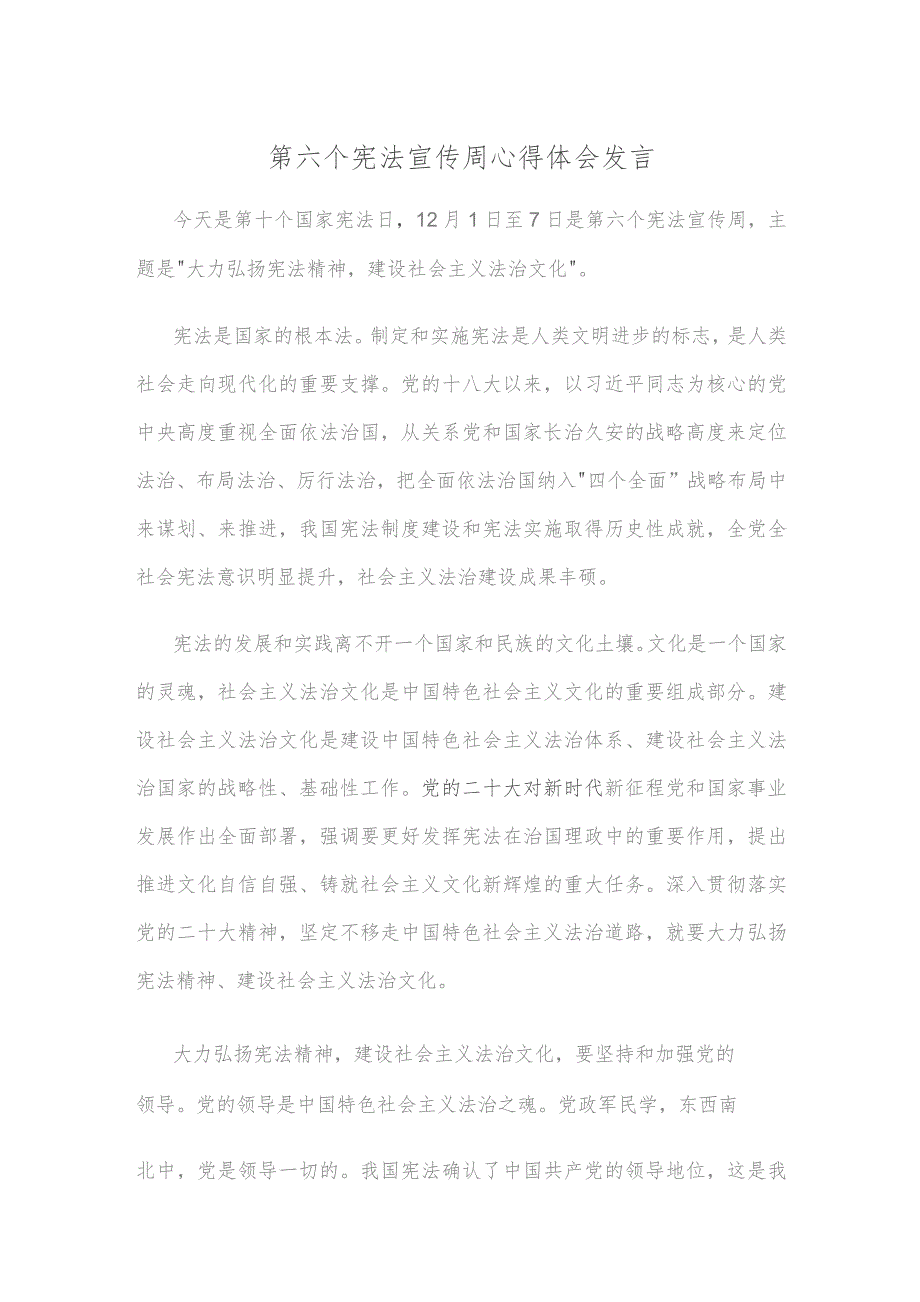 第六个宪法宣传周心得体会发言
今天是第十个国家宪法日，12月1日至7日是第六个宪法宣传周，主
题是"大力弘扬宪法精神，建设社会主义法治文化"。
宪法是国家的根本法。制定和实施宪法是人类文明进步的标志，是人类
社会走向现代化的重要支撑。党的十八大以来，以习近平同志为核心的党
中央高度重视全面依法治国，从关系党和国家长治久安的战略高度来定位
法治、布局法治、厉行法治，把全面依法治国纳入"四个全面”战略布局中
来谋划、来推进，我国宪法制度建设和宪法实施取得历史性成就，全党全
社会宪法意识明显提升，社会主义法治建设成果丰硕。
宪法的发展和实践离不开一个国家和民族的文化土壤。文化是一个国家
的灵魂，社会主义法治文化是中国特色社会主义文化的重要组成部分。建
设社会主义法治文化是建设中国特色社会主义法治体系、建设社会主义法
治国家的战略性、基础性工作。党的二十大对新时代新征程党和国家事业
发展作出全面部署，强调要更好发挥宪法在治国理政中的重要作用，提出
推进文化自信自强、铸就社会主义文化新辉煌的重大任务。深入贯彻落实
党的二十大精神，坚定不移走中国特色社会主义法治道路，就要大力弘扬
宪法精神、建设社会主义法治文化。
大力弘扬宪法精神，建设社会主义法治文化，要坚持和加强党的
领导。党的领导是中国特色社会主义法治之魂。党政军民学，东西南
北中，党是领导一切的。我国宪法确认了中国共产党的领导地位，这是我